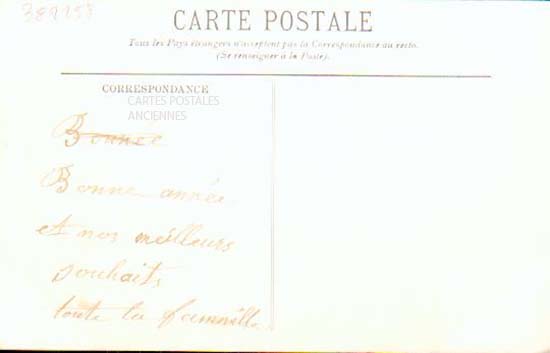 389258
CARTE POSTALE
Tous les Pays étrangers n'acceptent pas la Correspondance au recto.
(Se renseigner à la Poste).
CORRESPONDANCE
CARTES POSTALES
ANCIENNES
Bonnee
Bonne année
et nos meilleurs
souhaits,
toute la famille